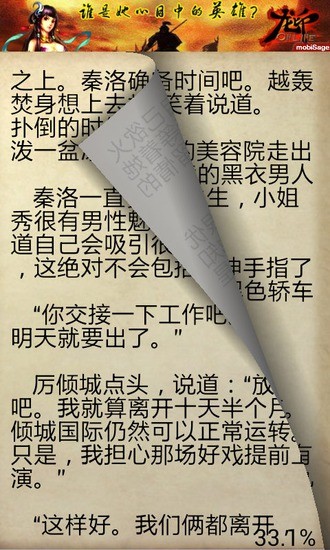 谁是她心目中的英雄？
mobiSage
之上。秦洛确
备时间吧。越轰
焚身想上去
笑着说道。
扑倒的时
泼一盆
的美容院走出
的黑衣男人
秦洛一直
生，小姐
秀很有男性魅
道自己会吸引很
，这绝对不会包
手指了
色轿车
“你交接一下工作吧
明天就要出了。”
厉倾城点头，说道：“放
吧。我就算离开十天半个月。
倾城国际仍然可以正常运转。
只是，我担心那场好戏提前
演。”
“这样好。我们俩都离开
33.1%